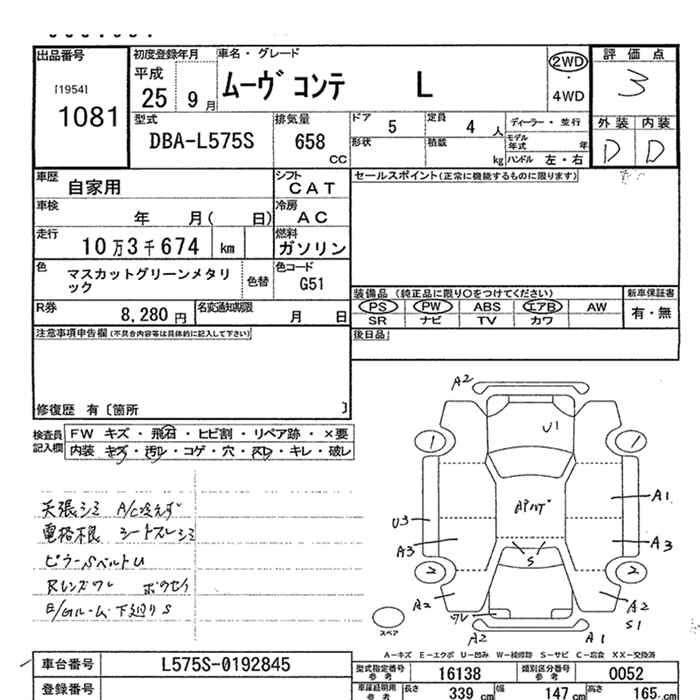 出品番号
[1954]
1081
初度登録年月
平成
25 9月
車名・グレード
ムーヴ コンテ L
2WD
・
4WD
評価点
3
外装 内装
D D
型式
DBA-L575S
排気量
658
cc
ドア 5
定員 4 人
形状
積載 kg
ディーラー・並行
モデル年式 年
ハンドル 左・右
車歴
自家用
シフト
CAT
セールスポイント(正常に機能するものに限ります)
車検
年 月( 日)
冷房
AC
走行
10万3千674 km
燃料
ガソリン
色
マスカットグリーンメタリ
ック
色替
色コード
G51
装備品 (純正品に限り○をつけてください)
PS PW ABS エアB AW
SR ナビ TV カワ
新車保証書
有・無
R券
8,280 円
名変通知期限
月 日
後日品
注意事項申告欄(不具合内容等は具体的に記入して下さい)
修復歴 有〔箇所 〕
検査員
記入欄
FW キズ・飛石・ヒビ割・リペア跡・×要
内装 キズ・汚レ・コゲ・穴・スレ・キレ・破レ
天張シミ A/C冷えず
電格不良 シートスレシミ
ピラーSベルトU
Rレンズワレ
下廻りS
A2
U1
1
1
A1
U3
A3
A3
S
2
2
A2
A2
S1
ワレ
A2
A1
スペア
A-キズ E-エクボ U-凹み W-補修跡 S-サビ C-腐食 XX-交換済
車台番号
L575S-0192845
登録番号
型式指定番号
参考
16138
類別区分番号
参考
0052
車庫証明用
参考
長さ 339 cm
幅 147 cm
高さ 165 cm